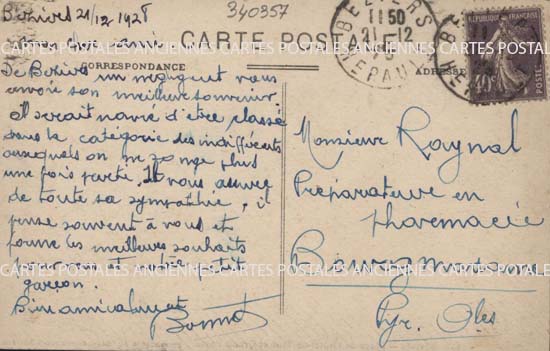 Béziers 21/12-1928
340357
BEZIERS
11 50
21-12
HERAULT
REPUBLIQUE FRANÇAISE
40c
POSTES
CARTE POSTALE
CORRESPONDANCE
ADRESSE
De Béziers un négligent vous
envoie son meilleur souvenir
Il serait navré d'être classé
dans la catégorie des indifférents
auxquels on ne songe plus
une fois partis. Il vous assure
de toute sa sympathie, il
pense souvent à vous et
forme les meilleurs souhaits
pour vous et votre petit
garçon.
Bien amicalement
Bonnet
Monsieur Raynal
Préparateur en
pharmacie
Bourg Madame
Pyr. Oles
CARTES POSTALES ANCIENNES CARTES POSTALES ANCIENNES CARTES POSTALES ANCIENNES